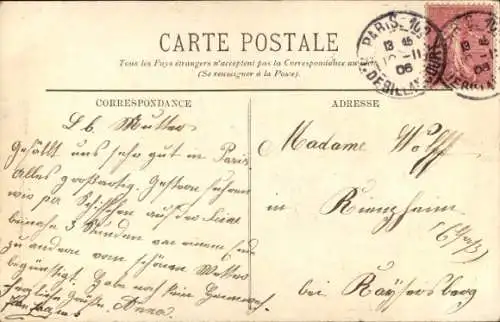 CARTE POSTALE
Tous les Pays étrangers n'acceptent pas la Correspondance au
(Se renseigner à la Poste).
PARIS
13 15
-11
06
CORRESPONDANCE
ADRESSE
Lb. Mutter
Gefällt uns sehr gut in Paris
Alles großartig. Gestern fuhren
wir per Schiffchen auf der Seine
beinahe 3 Stunden von einem Ende
zu andern vom schönen Wetter
begünstigt. Habe noch kein Heimweh
Herzliche Grüße, Anna.
Madame Wolff
in Kienzheim
(Elsaß)
bei Kaysersberg